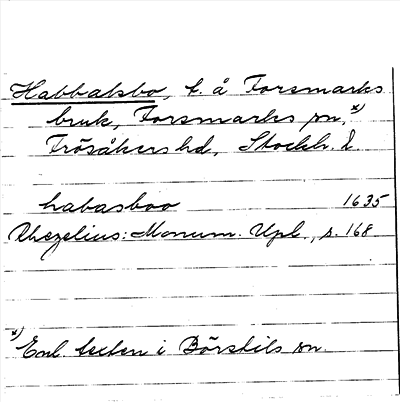 Habbalsbo, t. å Forsmarks
bruk, Forsmarks sn, x)
Frösåkers hd, Stockh. l.
habasboo 1635
Rhezelius: Monum. Upl., s. 168
x) Enl. texten i Börstils sn.